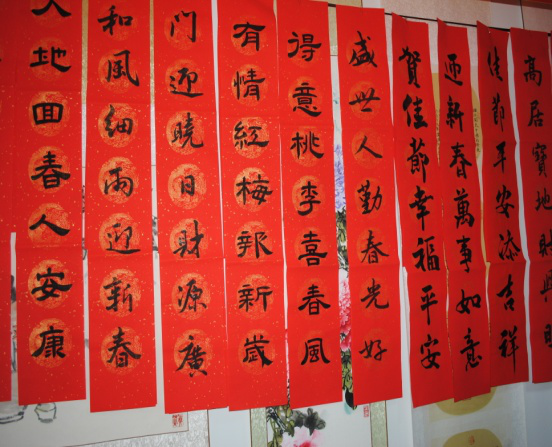 高居寶地財興
佳節平安添吉祥
迎新春萬事如意
賀佳節幸福平安
盛世人勤春光好
得意桃李喜春風
有情紅梅報新歲
門迎曉日財源廣
和風細雨迎新春
大地回春人安康